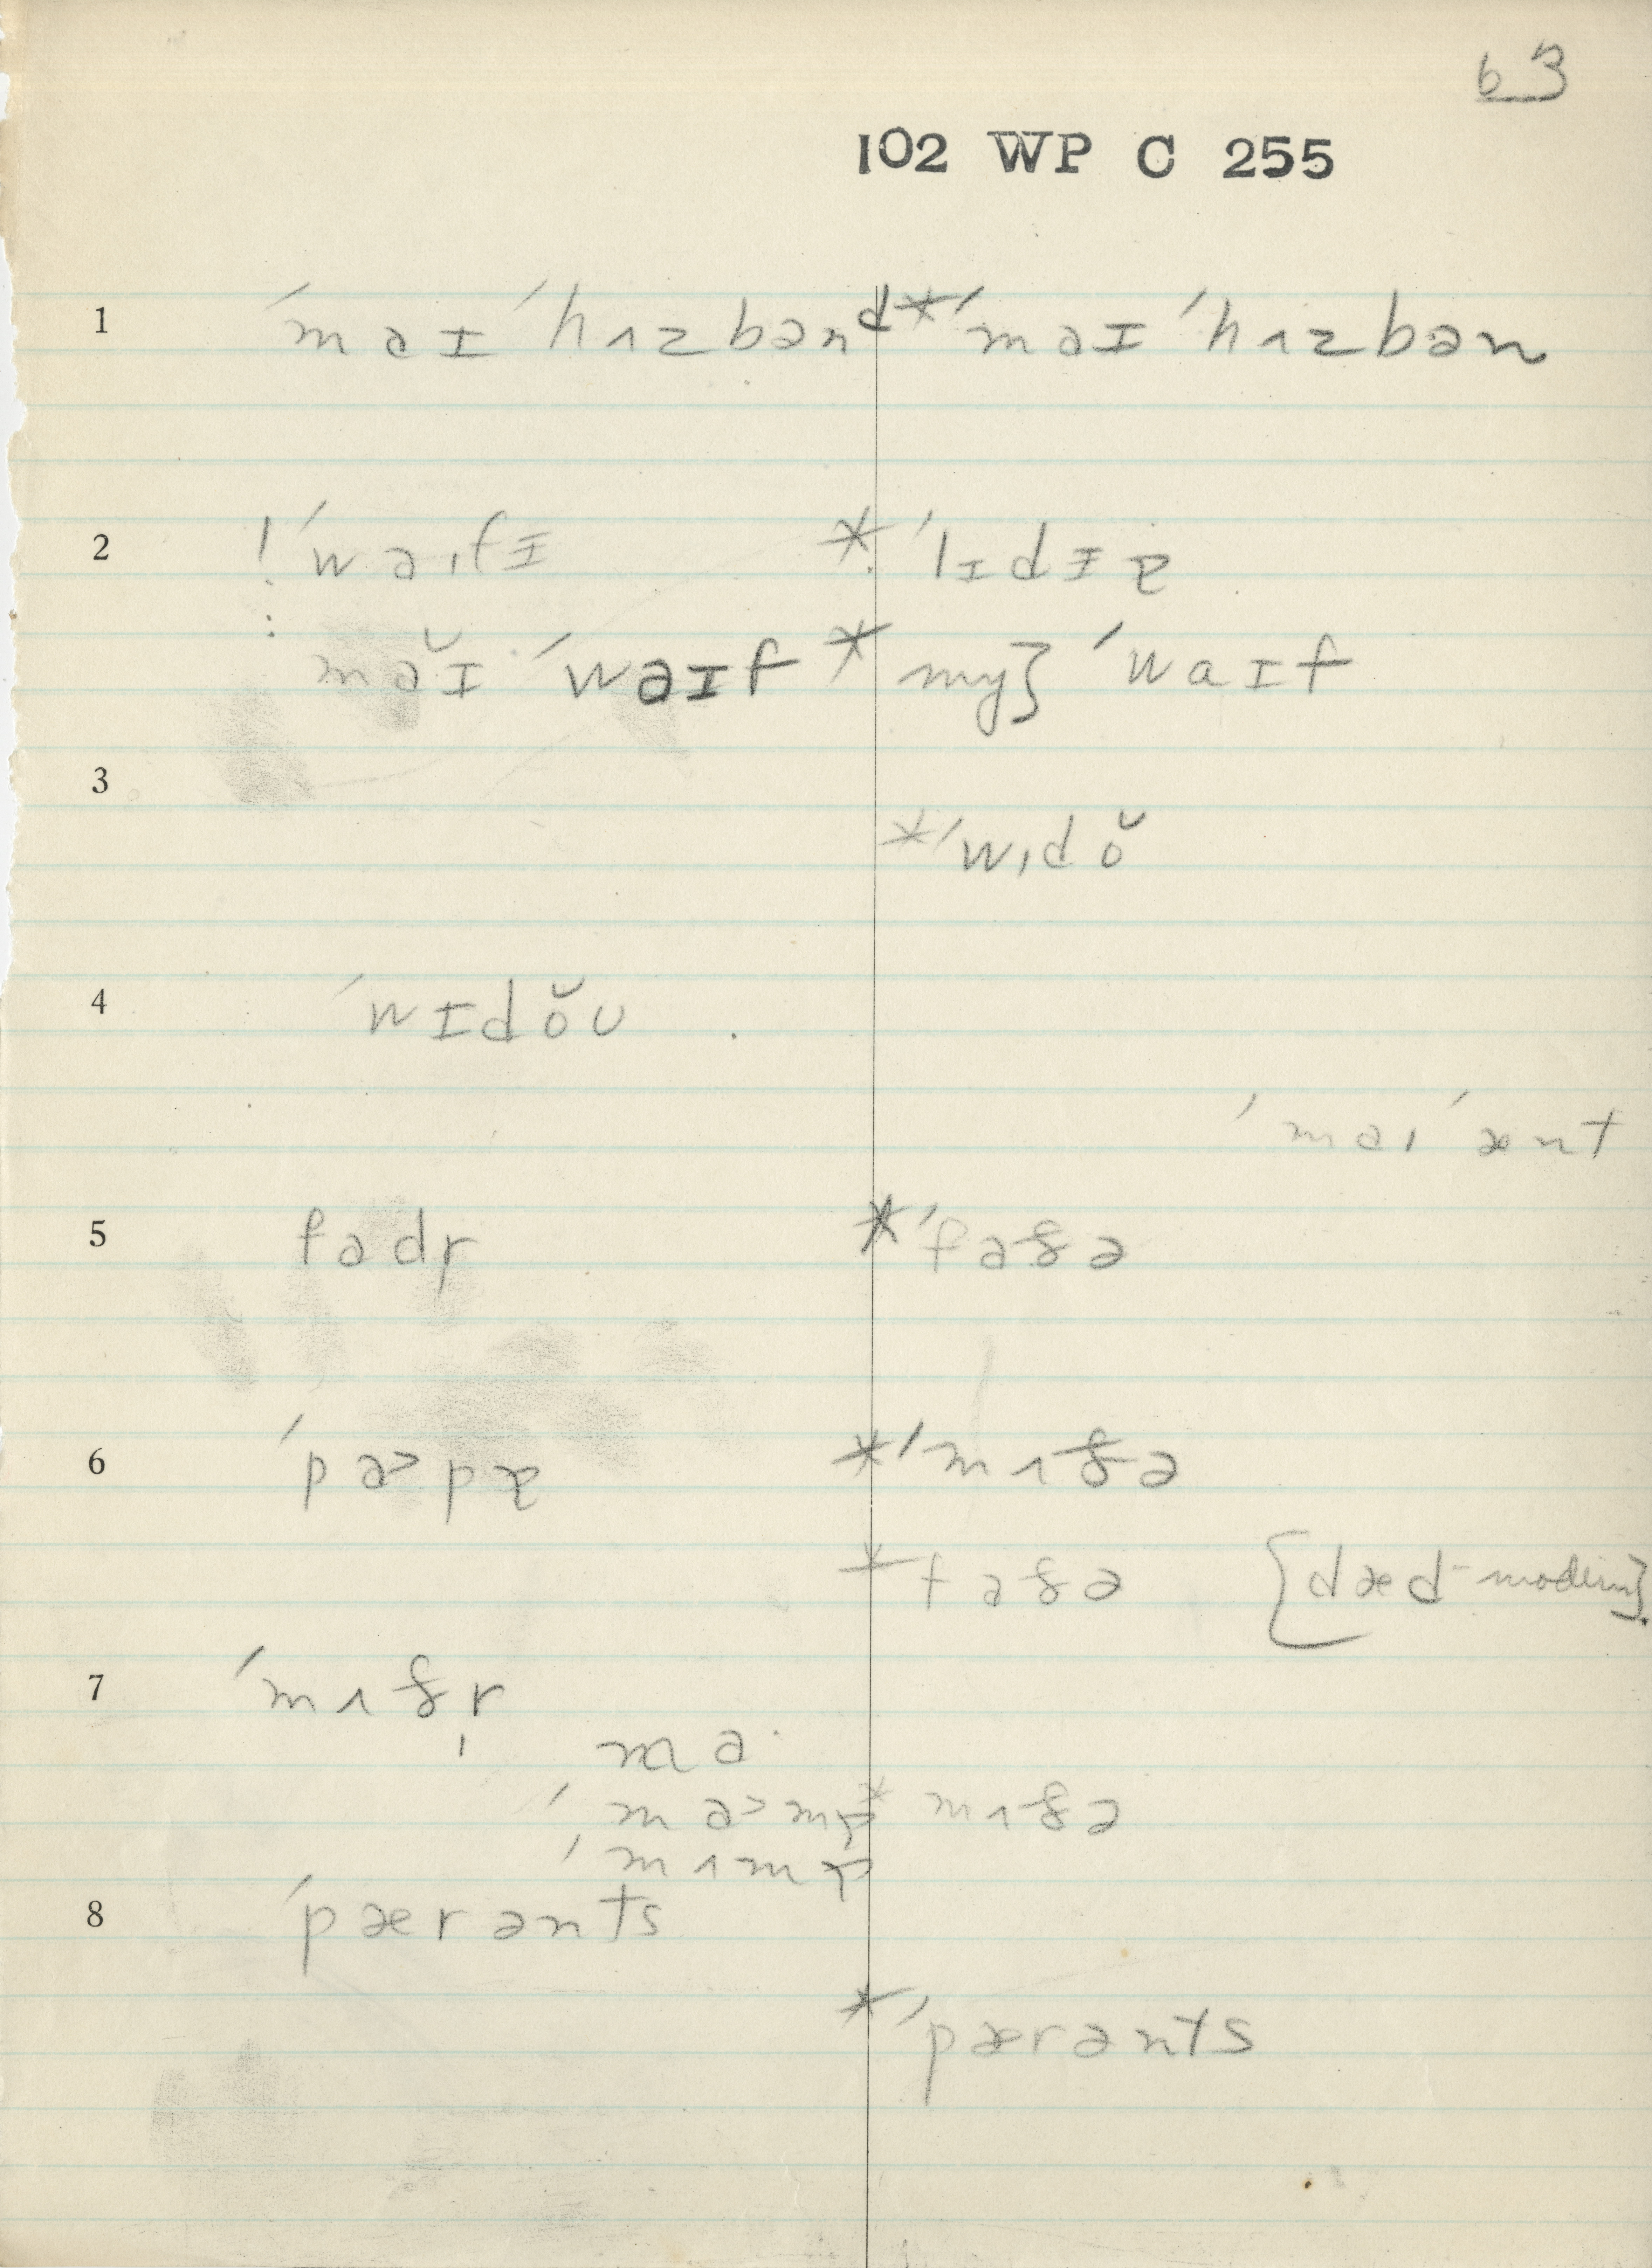 63
102 WP C 255
1 ˈmaɪ ˈhʌzbənd *ˈmaɪ ˈhʌzbən
2 ! ˈwaɪfɪ * ˈlɪdɪɐ
: mă̇ɪ ˈwaɪf * my} ˈwaɪf
3
*ˈwɪdŏ
4 ˈwɪdŏʊ
ˈmaɪ ˈænt
5 fadr̩ *ˈfaðə
6 ˈpa˃pɐ *ˈmʌðə
*faðə [dæd - modern].
7 ˈmʌðr̩
ma
ˈma˃mɐ * mʌðə
ˈmʌmɐ
8 ˈpærənts
*ˈpærənts